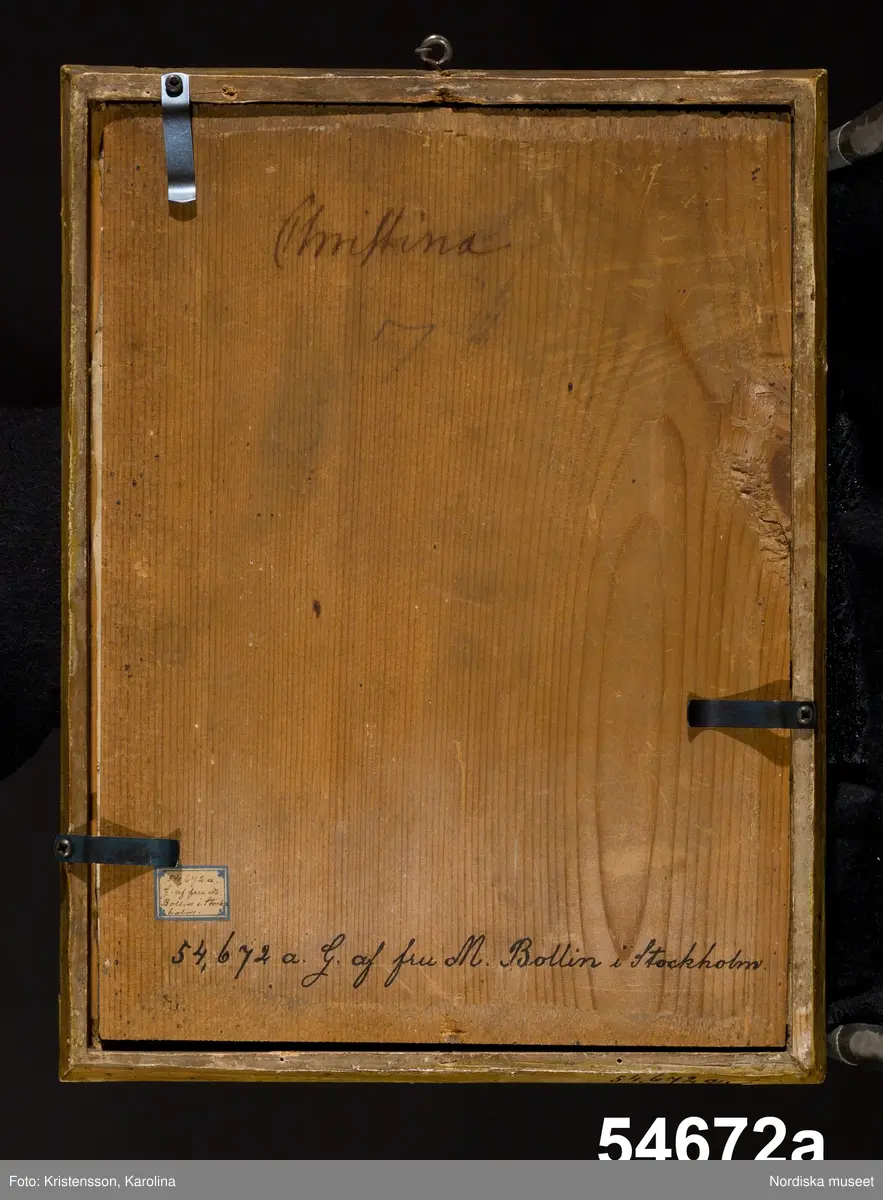 Christina
7
54,672 a.
G. af fru M.
Bollin i Stock
holm.
54,672 a. G. af fru M. Bollin i Stockholm.
54,672 a.
54672a
Foto: Kristensson, Karolina
Nordiska museet